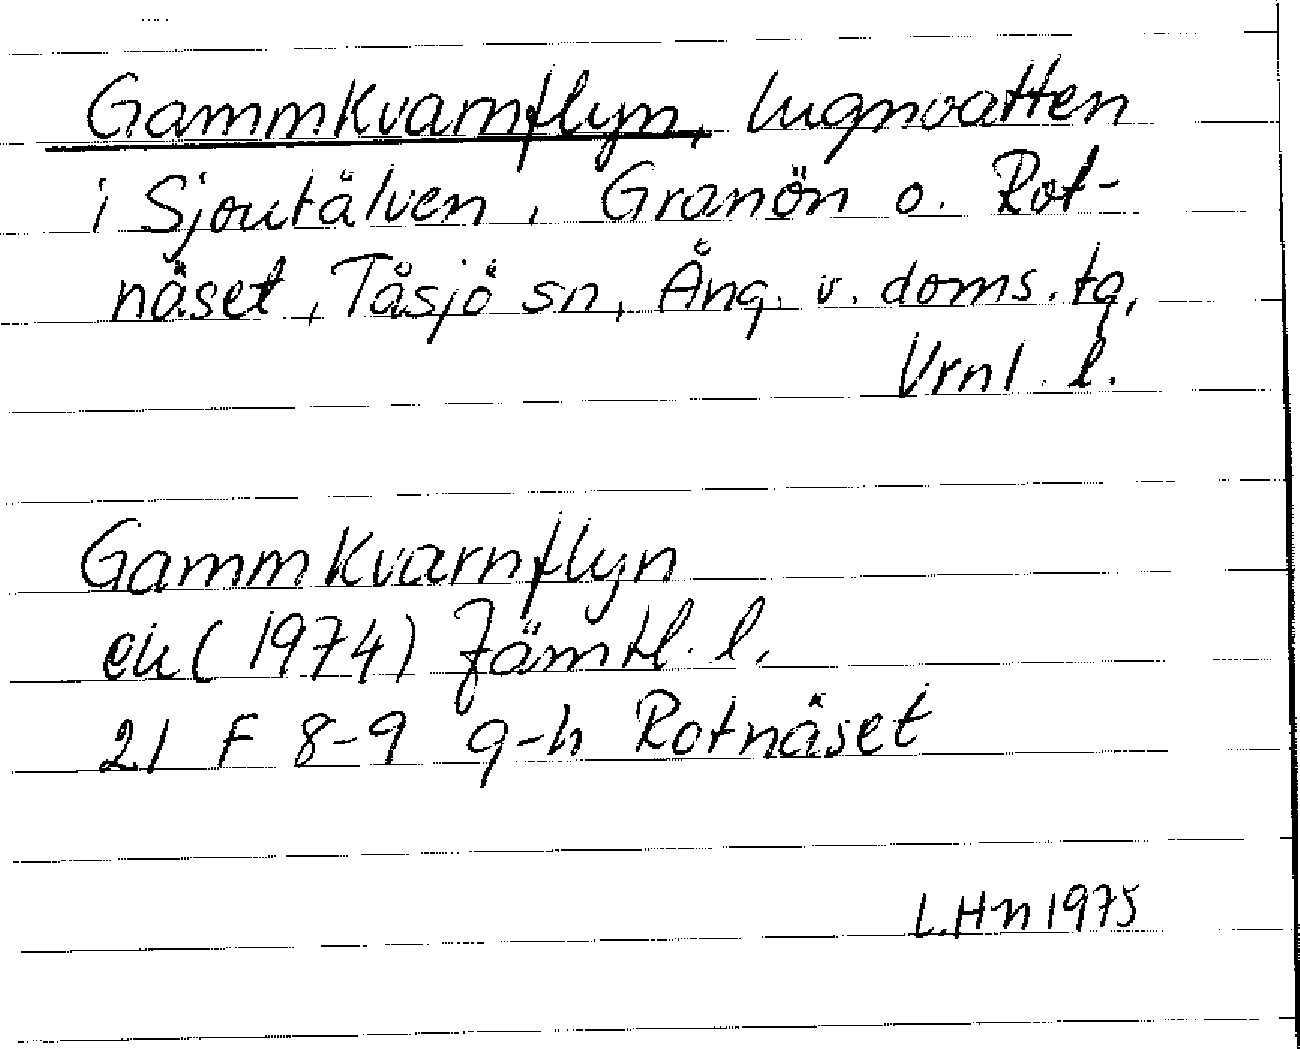 Gammkvarnflyn, lugnvatten
i Sjoutälven, Granön o. Rot-
näset, Tåsjö sn, Ång. v. doms.tg,
Vrnl. l.
Gammkvarnflyn
ek (1974) Jämtl. l.
21 F 8-9 g-h Rotnäset
L.Hn 1975